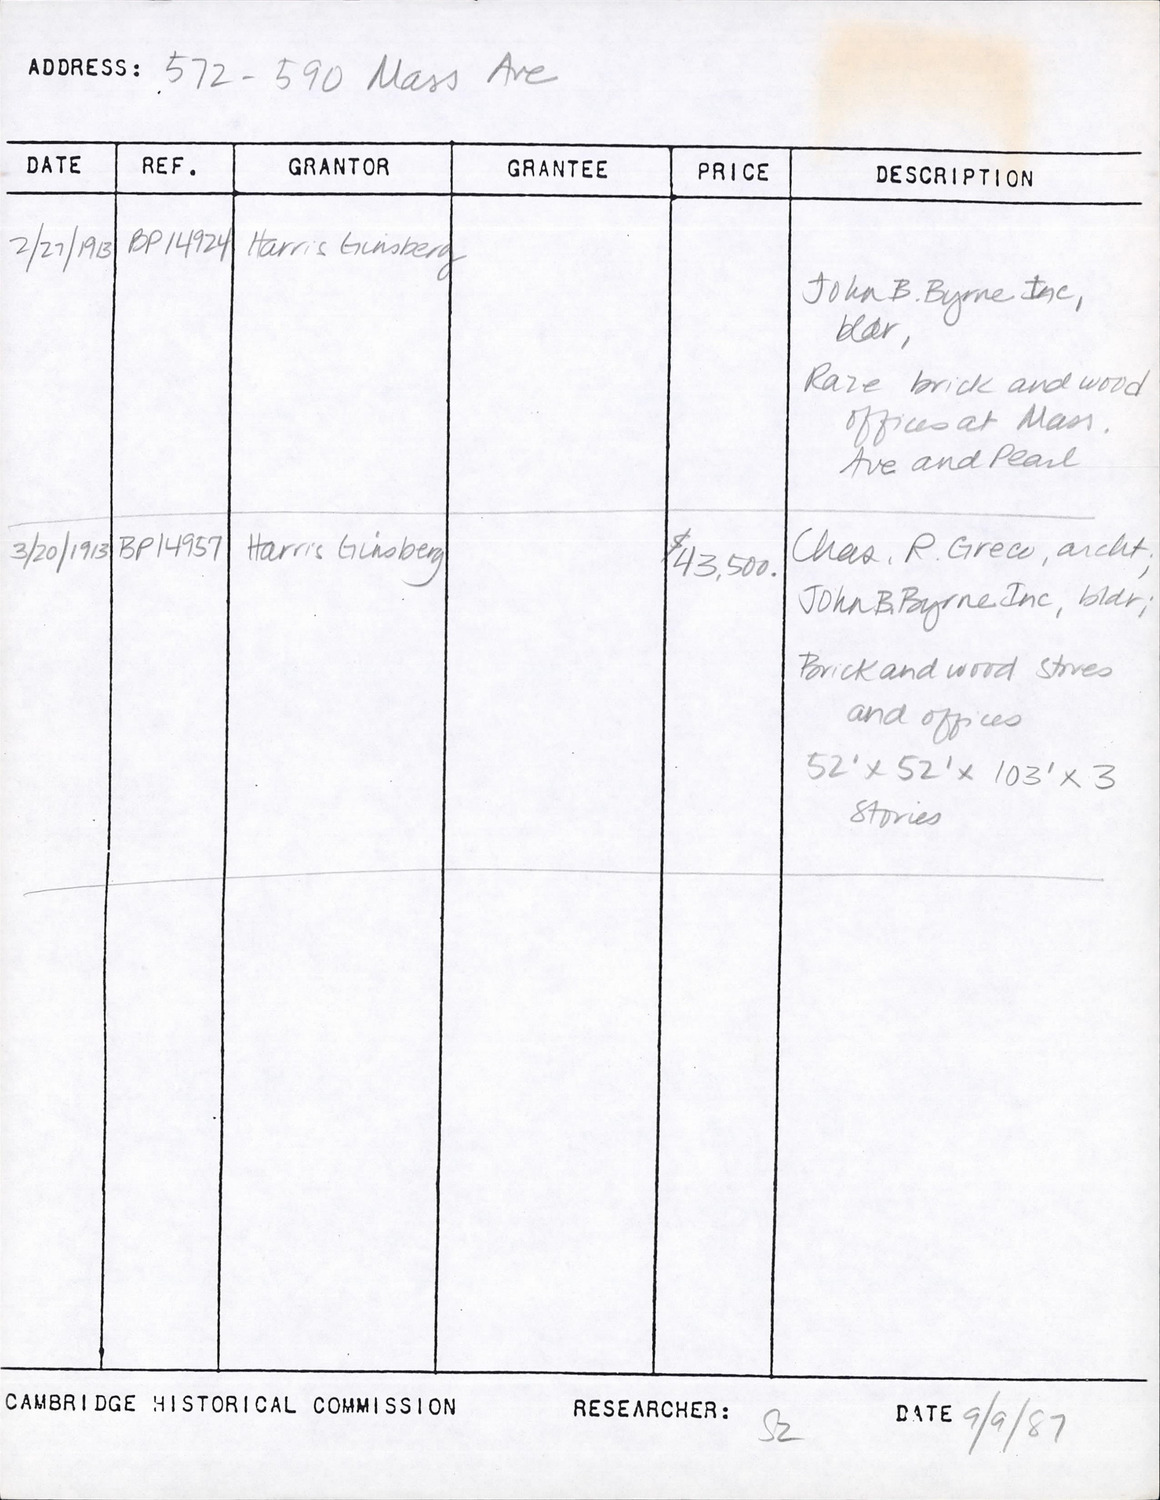 ADDRESS: 572-590 Mass Ave
DATE REF. GRANTOR GRANTEE PRICE DESCRIPTION
2/27/1913 BP14924 Harris Ginsberg
John B. Byrne Inc,
bldr,
Raze brick and wood
offices at Mass.
Ave and Pearl
3/20/1913 BP14957 Harris Ginsberg $43,500. Chas. R. Greco, archt;
John B. Byrne Inc, bldr;
Brick and wood stores
and offices
52'x52'x103'x3
stories
CAMBRIDGE HISTORICAL COMMISSION RESEARCHER: SZ DATE 9/9/87